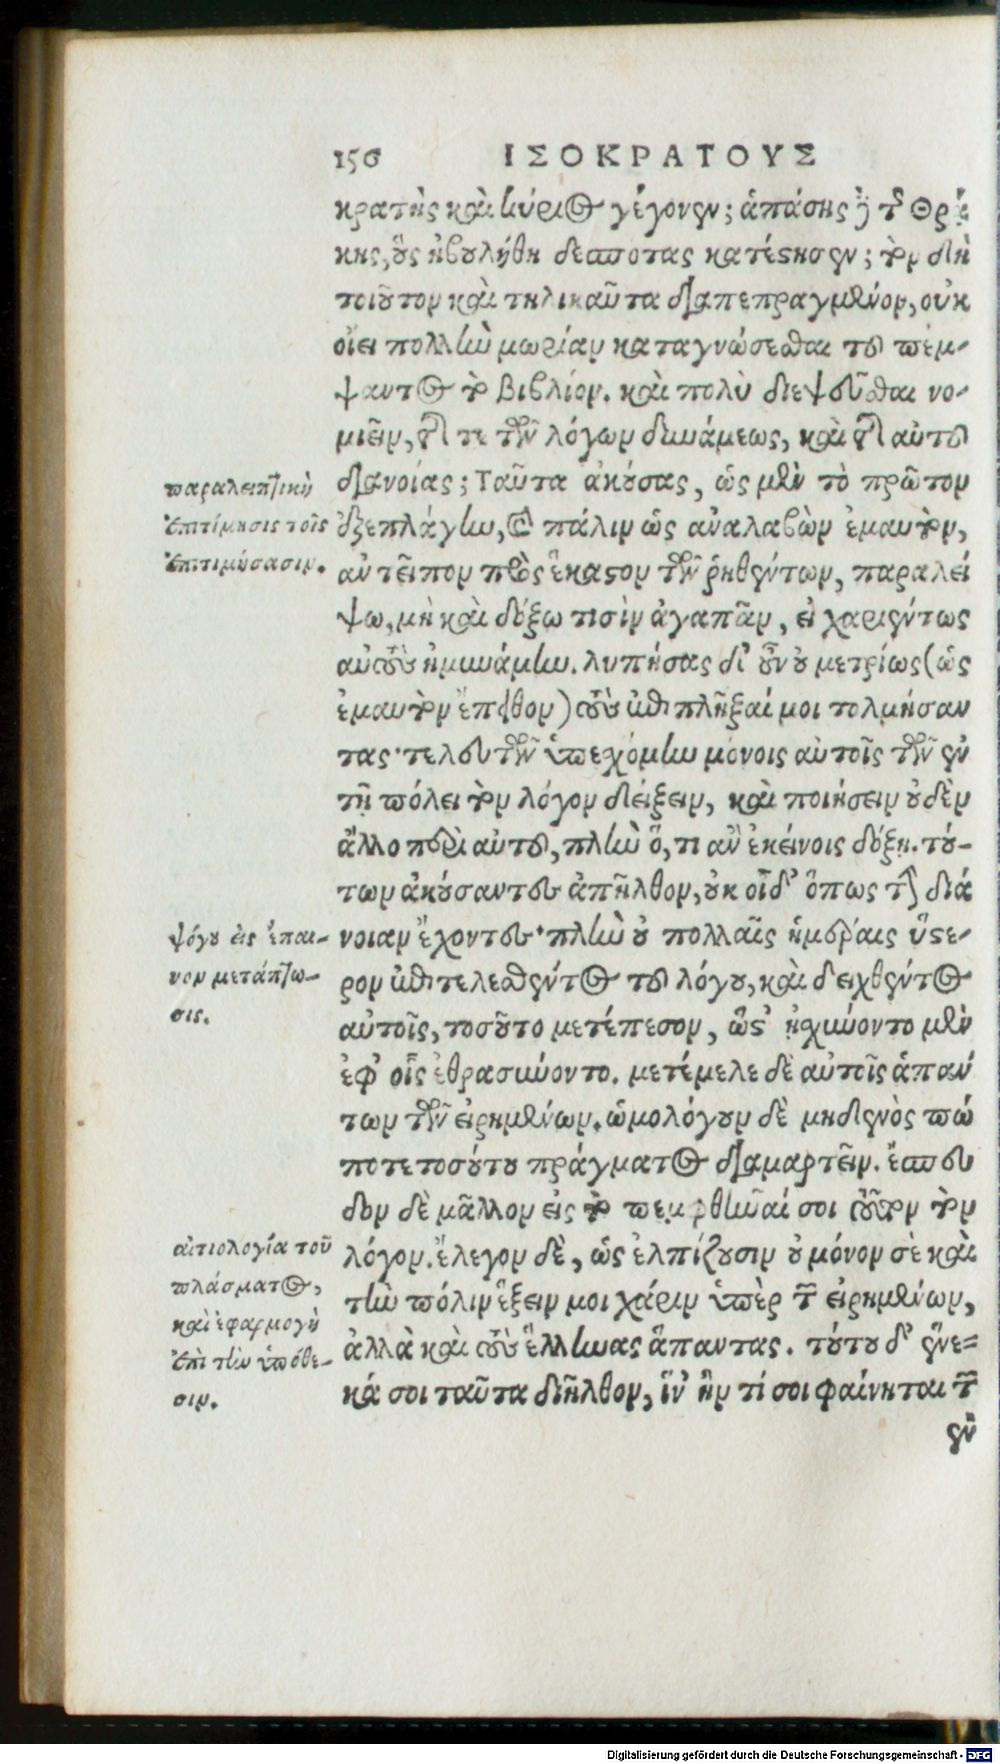 156 ΙΣΟΚΡΑΤΟΥΣ
κρατὴς καὶ κύριος γέγονεν; ἁπάσης δὲ τῆς Θρᾴ
κης, οὓς ἠβουλήθη δεσπότας κατέστησεν; τὸν δὴ
τοιοῦτον καὶ τηλικαῦτα διαπεπραγμένον, οὐκ
οἴει πολλὴν μωρίαν καταγνώσεσθαι τοῦ πέμ-
ψαντος τὸ βιβλίον. καὶ πολὺ διεψεῦσθαι νο-
μιεῖν, τῆς τε τῶν λόγων δυνάμεως, καὶ τῆς αὐτοῦ
διανοίας; Ταῦτα ἀκούσας, ὡς μὲν τὸ πρῶτον
παραλειπτικὴ
ἐπιτίμησις τοῖς
ἐπιτιμήσασιν.
ἐξεπλάγην, καὶ πάλιν ὡς ἀναλαβὼν ἐμαυτὸν,
ἀντεῖπον πρὸς ἕκαστον τῶν ῥηθέντων, παραλεί
ψω, μὴ καὶ δόξω τισὶν ἀγαπᾶν, εἰ χαριέντως
αὐτοὺς ἠμυνάμην. λυπήσας δ' οὖν οὐ μετρίως (ὡς
ἐμαυτὸν ἔπειθον) τοὺς ἐπιπλῆξαί μοι τολμήσαν
τας· τελευτῶν ὑπεσχόμην μόνοις αὐτοῖς τῶν ἐν
τῇ πόλει τὸν λόγον δείξειν, καὶ ποιήσειν οὐδὲν
ἄλλο περὶ αὐτοῦ, πλὴν ὅ, τι ἂν ἐκείνοις δόξῃ. τού-
των ἀκούσαντες ἀπῆλθον, οὐκ οἶδ' ὅπως τὴν διά
νοιαν ἔχοντες· πλὴν οὐ πολλαῖς ἡμέραις ὕστε-
ψόγου εἰς ἔπαι-
νον μετάπτω-
σις.
ρον ἐπιτελεσθέντος τοῦ λόγου, καὶ δειχθέντος
αὐτοῖς, τοσοῦτο μετέπεσον, ὥστ' ᾐσχύνοντο μὲν
ἐφ' οἷς ἐθρασύνοντο. μετέμελε δὲ αὐτοῖς ἁπάν
των τῶν εἰρημένων. ὡμολόγουν δὲ μηδενὸς πώ
ποτε τοσούτου πράγματος διαμαρτεῖν. ἔσπευ
δον δὲ μᾶλλον εἰς τὸ πεμφθῆναί σοι τοῦτον τὸν
αἰτιολογία τοῦ
πλάσματος,
καὶ ἐφαρμογὴ
ἐπὶ τὴν ὑπόθε-
σιν.
λόγον. ἔλεγον δὲ, ὡς ἐλπίζουσιν οὐ μόνον σὲ καὶ
τὴν πόλιν ἕξειν μοι χάριν ὑπὲρ τῶν εἰρημένων,
ἀλλὰ καὶ τοὺς ἕλληνας ἅπαντας. τούτου δ' ἕνε-
κά σοι ταῦτα διῆλθον, ἵν' ἤν τί σοι φαίνηται τῶν
ἐν
Digitalisierung gefördert durch die Deutsche Forschungsgemeinschaft - DFG